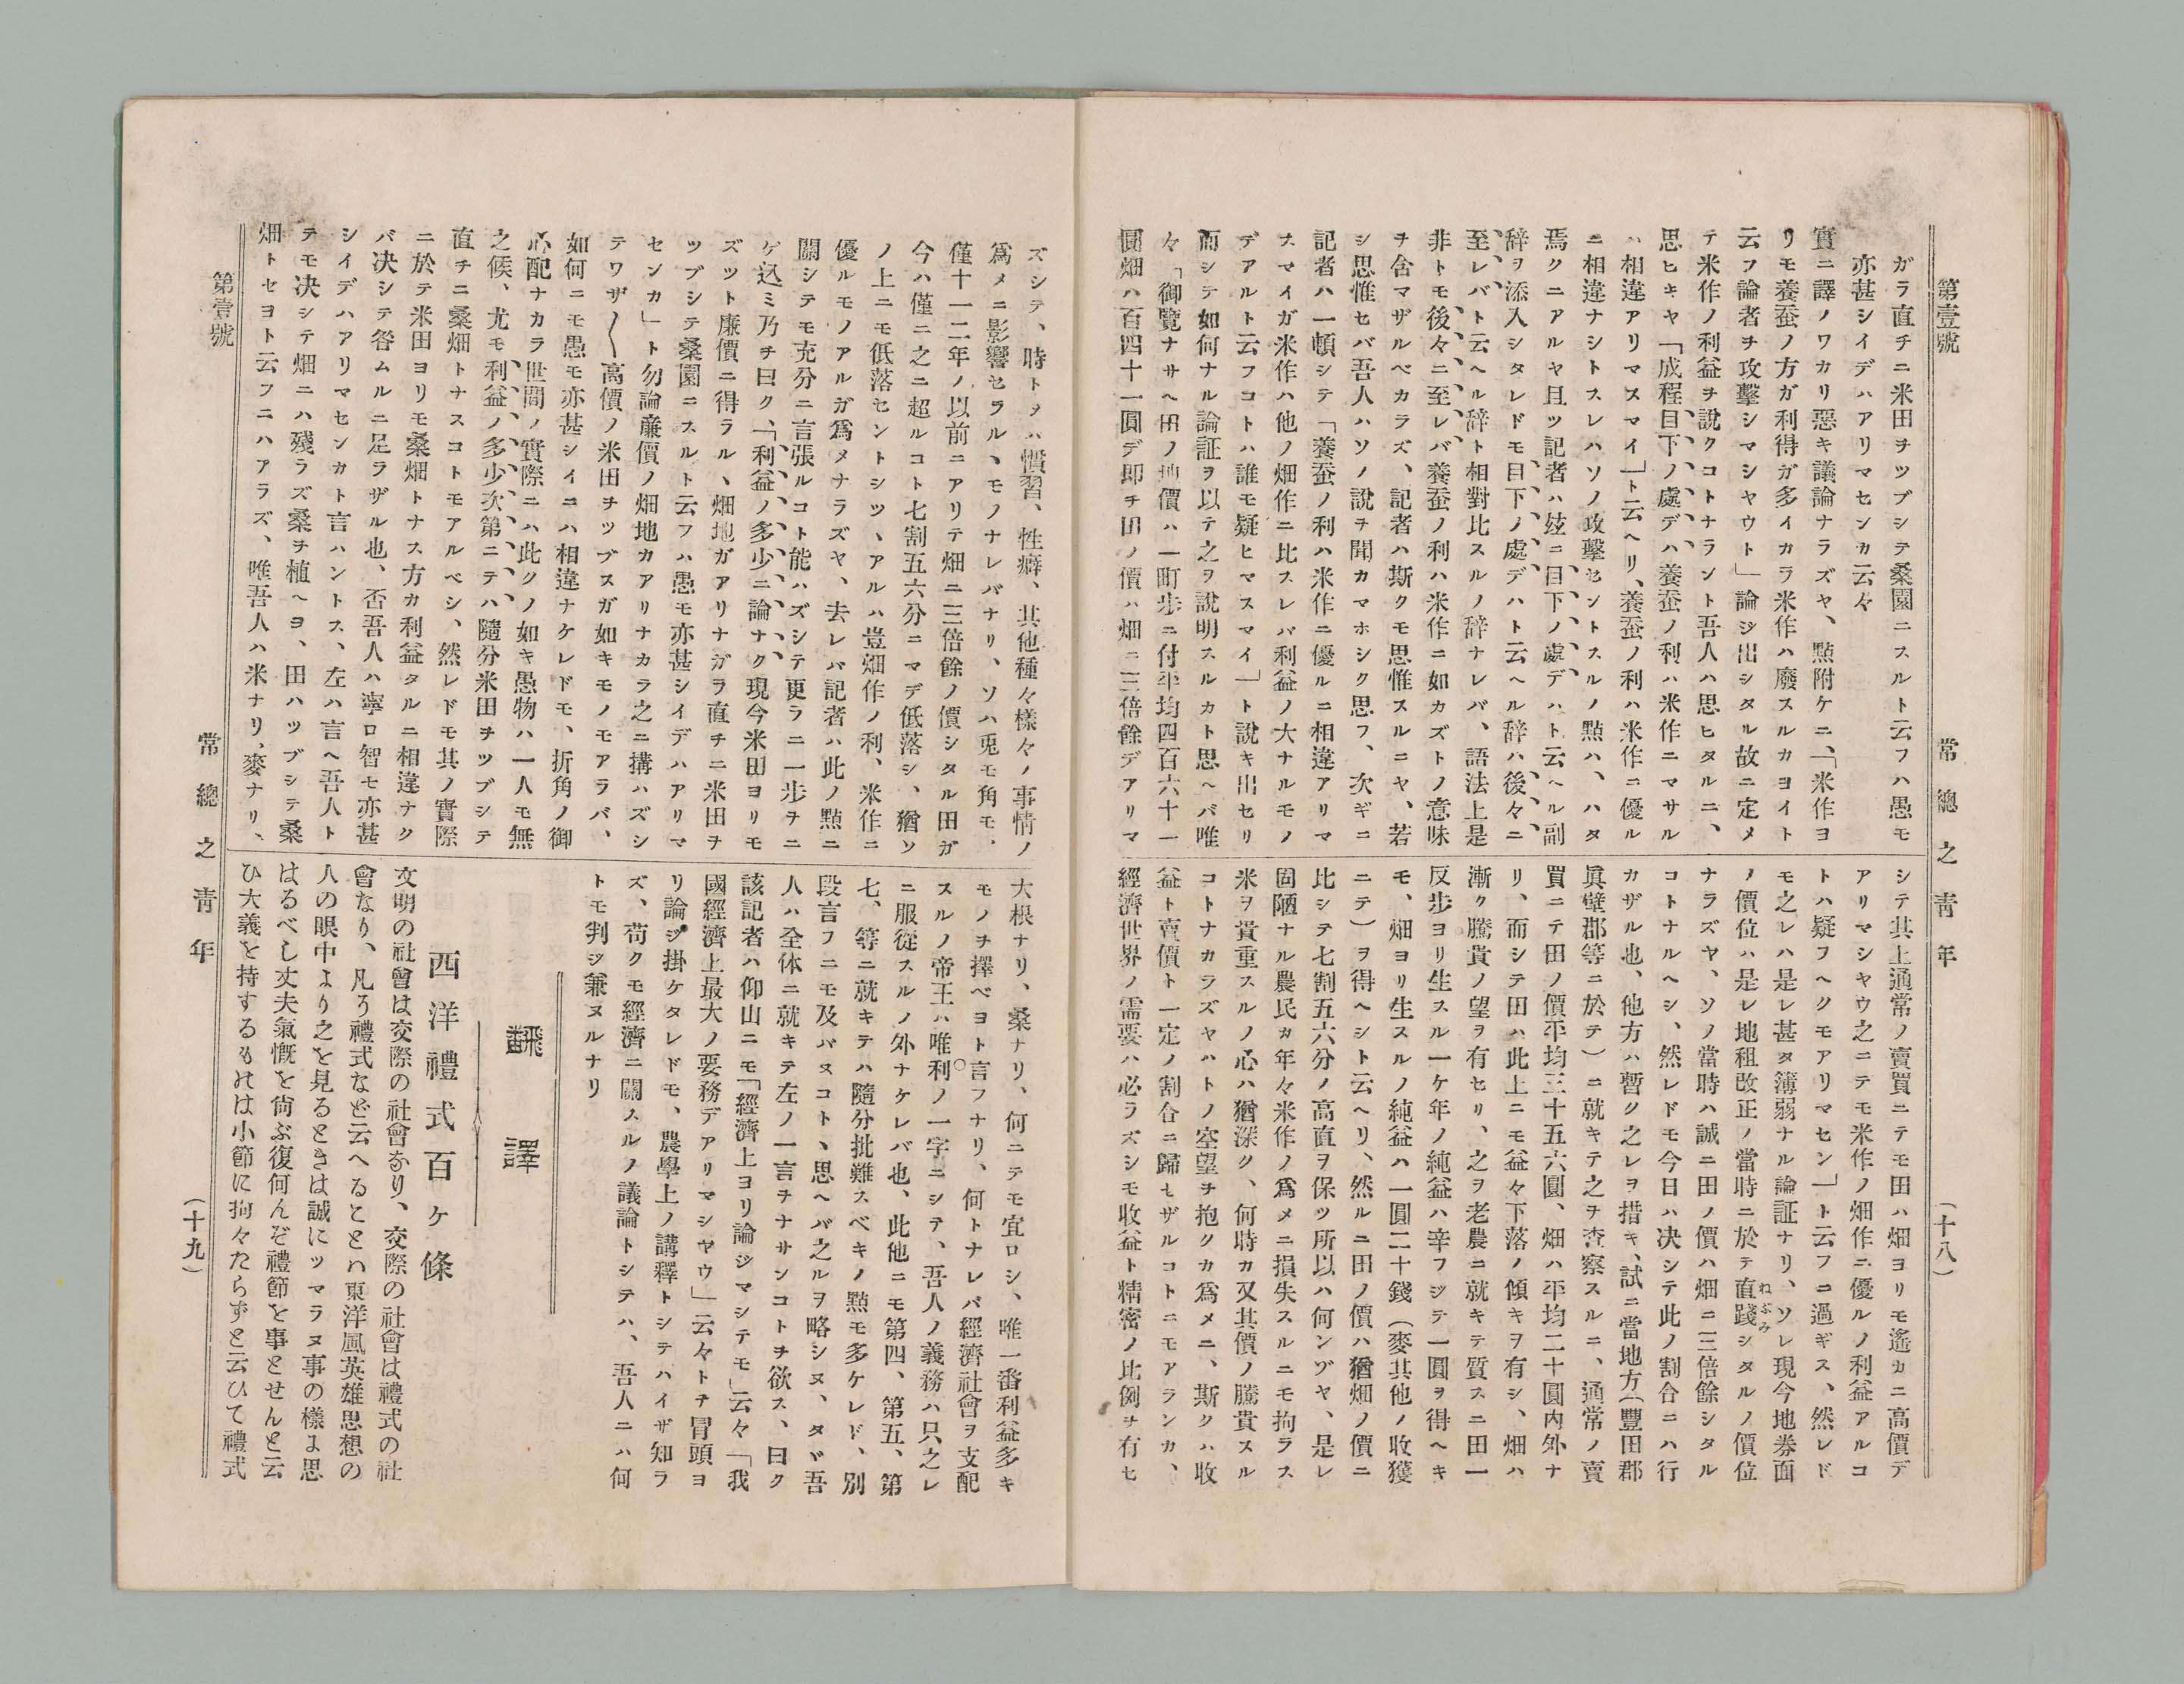 第壹號
常總之靑年
(十八)
ガラ直チニ米田ヲツブシテ桑園ニスルト云フハ愚モ
亦甚シイデハアリマセンカ云々
實ニ譯ノワカリ惡キ議論ナラズヤ、點附ケニ、「米作ヨ
リモ養蚕ノ方ガ利得ガ多イカラ米作ハ廢スルカヨイト
云フ論者ヲ攻擊シマシヤウト」論ジ出シタル故ニ定メ
テ米作ノ利益ヲ說クコトナラント吾人ハ思ヒタルニ、
思ヒキヤ「成程目下ノ處デハ養蚕ノ利ハ米作ニマサル
ハ相違アリマスマイ」ト云ヘリ、養蚕ノ利ハ米作ニ優ル
ニ相違ナシトスレハソノ攻擊セントスルノ點ハ、ハタ
焉クニアルヤ且ツ記者ハ玆ニ目下ノ處デハト云ヘル副
辭ヲ添入シタレドモ目下ノ處デハト云ヘル辭ハ後々ニ
至レバト云ヘル辭ト相對比スルノ辭ナレバ、語法上是
非トモ後々ニ至レバ養蚕ノ利ハ米作ニ如カズトノ意味
ヲ含マザルベカラズ、記者ハ斯クモ思惟スルニヤ、若
シ思惟セバ吾人ハソノ說ヲ聞カマホシク思フ、次ギニ
記者ハ一頓シテ「養蚕ノ利ハ米作ニ優ルニ相違アリマ
スマイガ米作ハ他ノ畑作ニ比スレバ利益ノ大ナルモノ
デアルト云フコトハ誰モ疑ヒマスマイ」ト說キ出セリ
而シテ如何ナル論証ヲ以テ之ヲ說明スルカト思ヘバ唯
々「御覽ナサヘ田ノ地價ハ一町步ニ付平均四百六十一
圓畑ハ百四十一圓デ即チ田ノ價ハ畑ニ三倍餘デアリマ
シテ其上通常ノ賣買ニテモ田ハ畑ヨリモ遙カニ高價デ
アリマシヤウ之ニテモ米作ノ畑作ニ優ルノ利益アルコ
トハ疑フヘクモアリマセン」ト云フニ過ギス、然レド
モ之レハ是レ甚タ簿弱ナル論証ナリ、ソレ現今地券面
ノ價位ハ是レ地租改正ノ當時ニ於テ直踐シタルノ價位
ねぶみ
ナラズヤ、ソノ當時ハ誠ニ田ノ價ハ畑ニ三倍餘シタル
コトナルヘシ、然レドモ今日ハ决シテ此ノ割合ニハ行
カザル也、他方ハ暫ク之レヲ措キ、試ニ當地方(豐田郡
眞壁郡等ニ於テ)ニ就キテ之ヲ査察スルニ、通常ノ賣
買ニテ田ノ價平均三十五六圓、畑ハ平均二十圓內外ナ
リ、而シテ田ハ此上ニモ益々下落ノ傾キヲ有シ、畑ハ
漸ク騰貴ノ望ヲ有セリ、之ヲ老農ニ就キテ質スニ田一
反步ヨリ生スル一ケ年ノ純益ハ辛フジテ一圓ヲ得ヘキ
モ、畑ヨリ生スルノ純益ハ一圓二十錢(麥其他ノ收獲
ニテ)ヲ得ヘシト云ヘリ、然ルニ田ノ價ハ猶畑ノ價ニ
比シテ七割五六分ノ高直ヲ保ツ所以ハ何ンヅヤ、是レ
固陋ナル農民カ年々米作ノ爲メニ損失スルニモ拘ラス
米ヲ貴重スルノ心ハ猶深ク、何時カ又其價ノ騰貴スル
コトナカラズヤハトノ空望ヲ抱クカ爲メニ、斯クハ收
益ト賣價ト一定ノ割合ニ歸セザルコトニモアランカ、
經濟世界ノ需要ハ必ラズシモ收益ト精密ノ比例ヲ有セ
ズシテ、時トヲハ慣習、性癖、其他種々樣々ノ事情ノ
爲メニ影響セラル、モノナレバナリ、ソハ兎モ角モ、
僅十一二年ノ以前ニアリテ畑ニ三倍餘ノ價シタル田ガ
今ハ僅ニ之ニ超ルコト七割五六分ニマデ低落シ、猶ソ
ノ上ニモ低落セントシツ、アルハ豈畑作ノ利、米作ニ
優ルモノアルガ爲メナラズヤ、去レバ記者ハ此ノ點ニ
關シテモ充分ニ言張ルコト能ハズシテ更ラニ一步ヲニ
ゲ込ミ乃チ曰ク、「利益ノ多少ニ論ナク現今米田ヨリモ
ズツト廉價ニ得ラル、畑地ガアリナガラ直チニ米田ヲ
ツブシテ桑園ニスルト云フハ愚モ亦甚シイデハアリマ
センカ」ト勿論廉價ノ畑地カアリナカラ之ニ搆ハズシ
テワザ〱高價ノ米田ヲツブスガ如キモノモアラバ、
如何ニモ愚モ亦甚シイニハ相違ナケレドモ、折角ノ御
心配ナカラ世間ノ實際ニハ此クノ如キ愚物ハ一人モ無
之候、尤モ利益ノ多少次第ニテハ隨分米田ヲツブシテ
直チニ桑畑トナスコトモアルベシ、然レドモ其ノ實際
ニ於テ米田ヨリモ桑畑トナス方カ利益タルニ相違ナク
バ决シテ咎ムルニ足ラザル也、否吾人ハ寧ロ智モ亦甚
シイデハアリマセンカト言ハントス、左ハ言ヘ吾人ト
テモ决シテ畑ニハ殘ラズ桑ヲ植ヘヨ、田ハツブシテ桑
畑トセヨト云フニハアラズ、唯吾人ハ米ナリ、麥ナリ、
大根ナリ、桑ナリ、何ニテモ宜ロシ、唯一番利益多キ
モノヲ擇ベヨト言フナリ、何トナレバ經濟社會ヲ支配
スルノ帝王ハ唯利ノ一字ニシテ、吾人ノ義務ハ只之レ
ニ服從スルノ外ナケレバ也、此他ニモ第四、第五、第
七、等ニ就キテハ隨分批難スベキノ點モ多ケレド、別
段言フニモ及バヌコト、思ヘバ之ルヲ略シヌ、タヾ吾
人ハ全体ニ就キテ左ノ一言ヲナサンコトヲ欲ス、曰ク
該記者ハ仰山ニモ「經濟上ヨリ論ジマシテモ」云々「我
國經濟上最大ノ要務デアリマシヤウ」云々トヲ冒頭ヨ
リ論ジ掛ケタレドモ、農學上ノ講釋トシテハイザ知ラ
ズ、苟クモ經濟ニ關スルノ議論トシテハ、吾人ニハ何
トモ判ジ兼ヌルナリ
飜譯
西洋禮式百ケ條
文明の社會は交際の社會なり、交際の社會は禮式の社
會なり、凡ろ禮式などゝ云へることハ東洋風英雄思想の
人の眼中より之を見るときは誠にツマラヌ事の樣よ思
はるべし丈夫氣慨を尙ぶ復何んぞ禮節を事とせんと云
ひ大義を持するものは小節に拘々たらずと云ひて禮式
第壹號
常總之靑年
(十九)